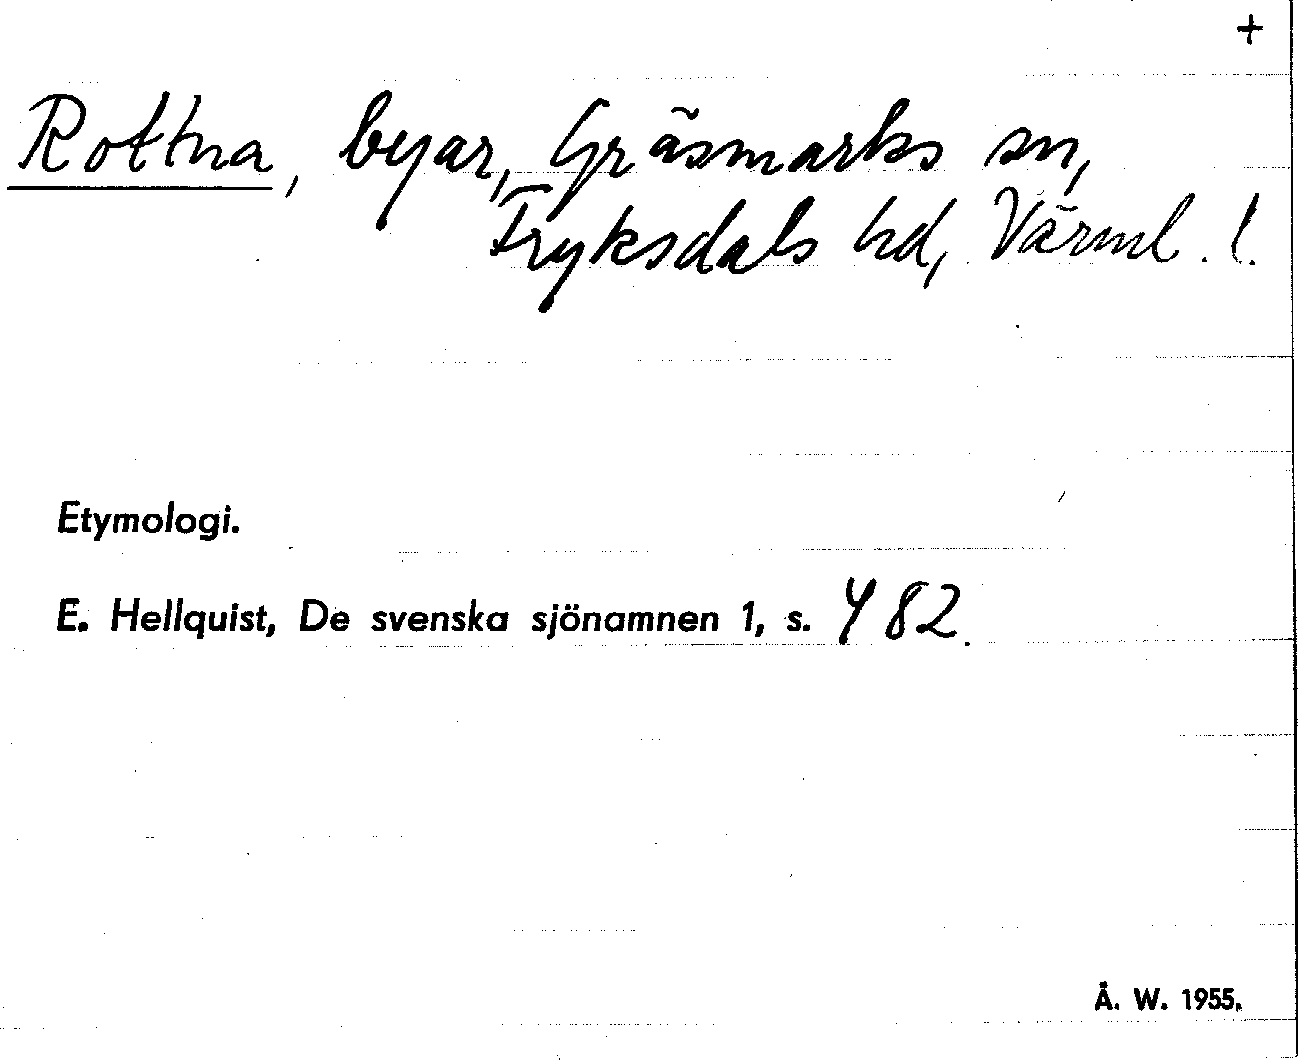 +
Rottna, byar, Gräsmarks sn,
Fryksdals hd, Värml. l.
Etymologi.
E. Hellquist, De svenska sjönamnen 1, s. 482.
Å. W. 1955.